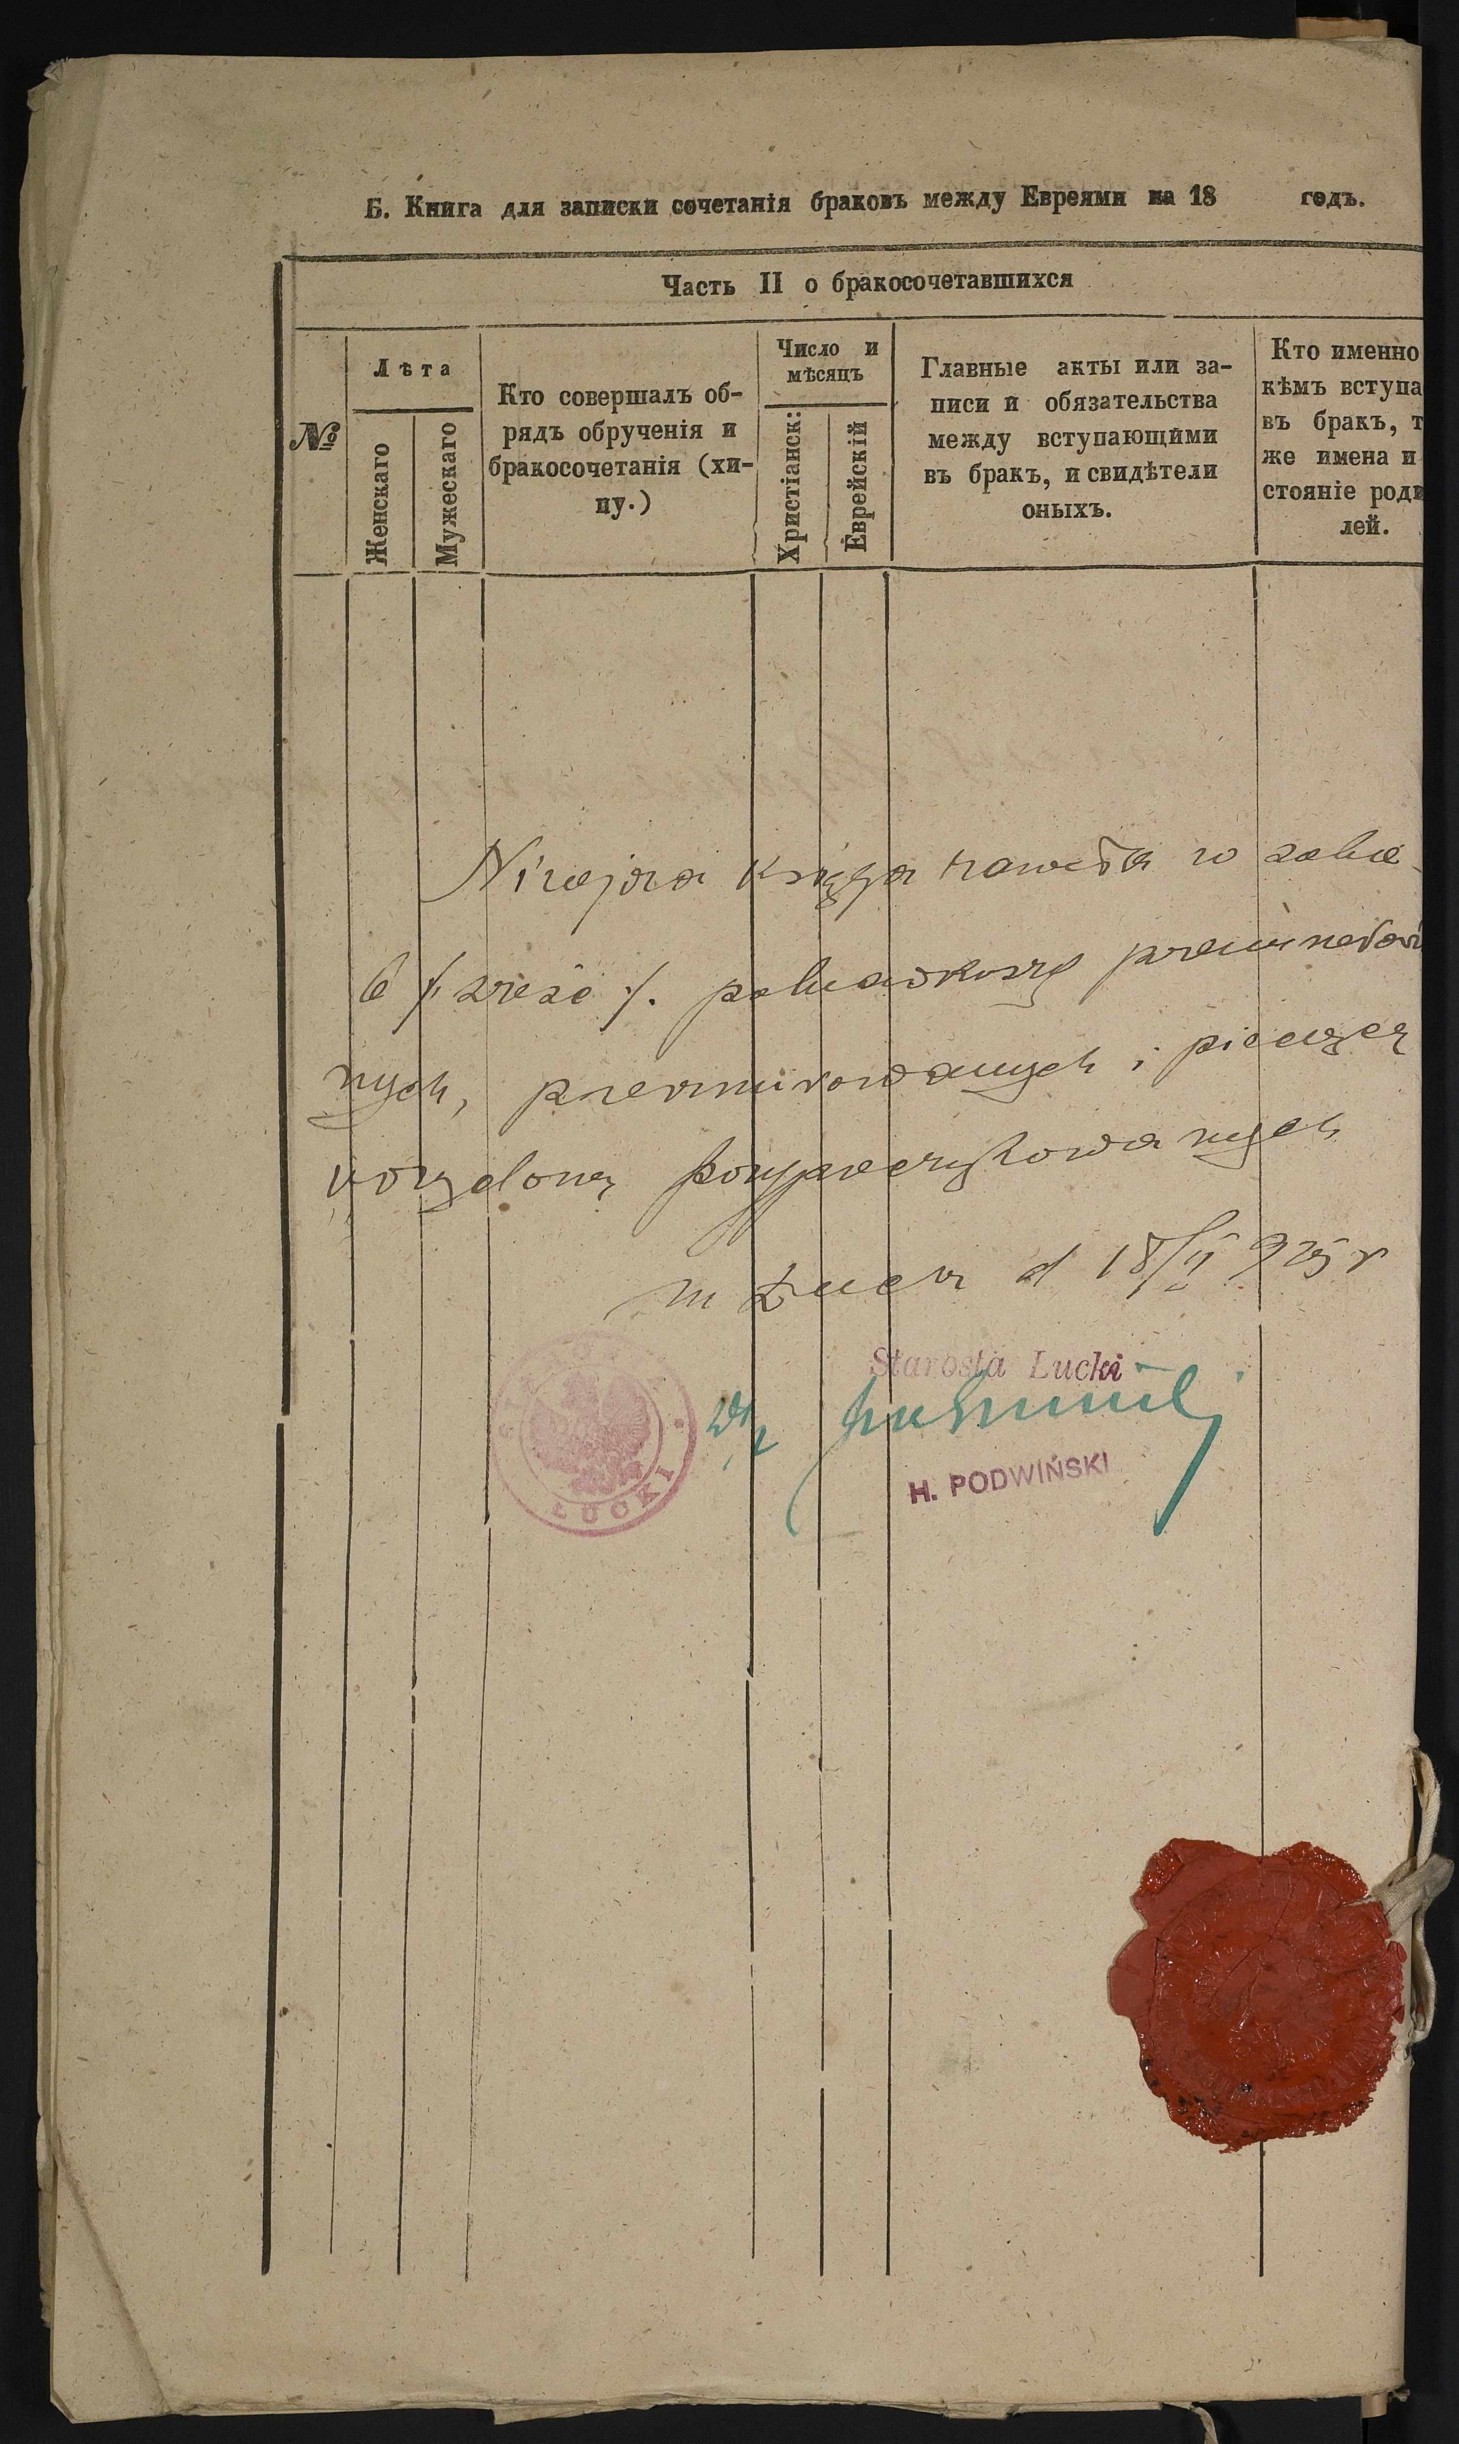 Б. Книга для записки сочетанія браковъ между Евреями на 18 годъ.
Часть II о бракосочетавшихся
№
Лѣта
Женскаго
Мужескаго
Кто совершалъ об-
рядъ обрученія и
бракосочетанія (хи-
пу.)
Число и
мѣсяцъ
Христіанск:
Еврейскій
Главные акты или за-
писи и обязательства
между вступающими
въ бракъ, и свидѣтели
оныхъ.
Кто именно
кѣмъ вступа
въ бракъ, т
же имена и
стояніе роди
лей.
Niniejsza księga zawiera w sobie
6 /: sześć :/.
nych, i pieczęcią
urzędową
m Łuck d 18/II 925 r
Starosta Łucki
H. PODWIŃSKI
STAROSTA
ŁUCKI